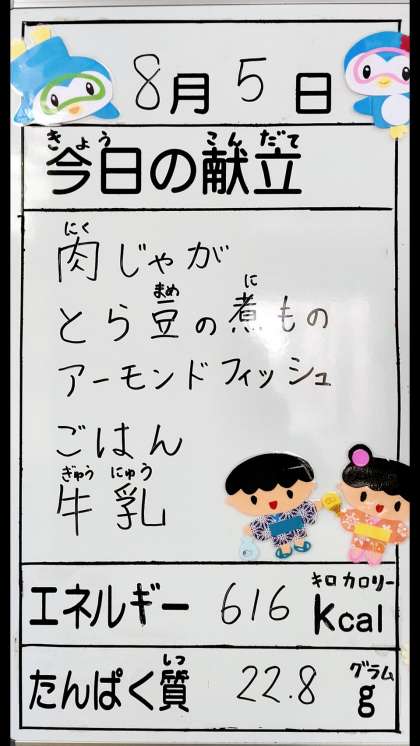 8月5日
きょう こんだて
今日の献立
にく
肉じゃが
まめ に
とら豆の煮もの
アーモンドフィッシュ
ごはん
ぎゅう にゅう
牛乳
キロカロリー
エネルギー 616 Kcal
しつ グラム
たんぱく質 22.8 g